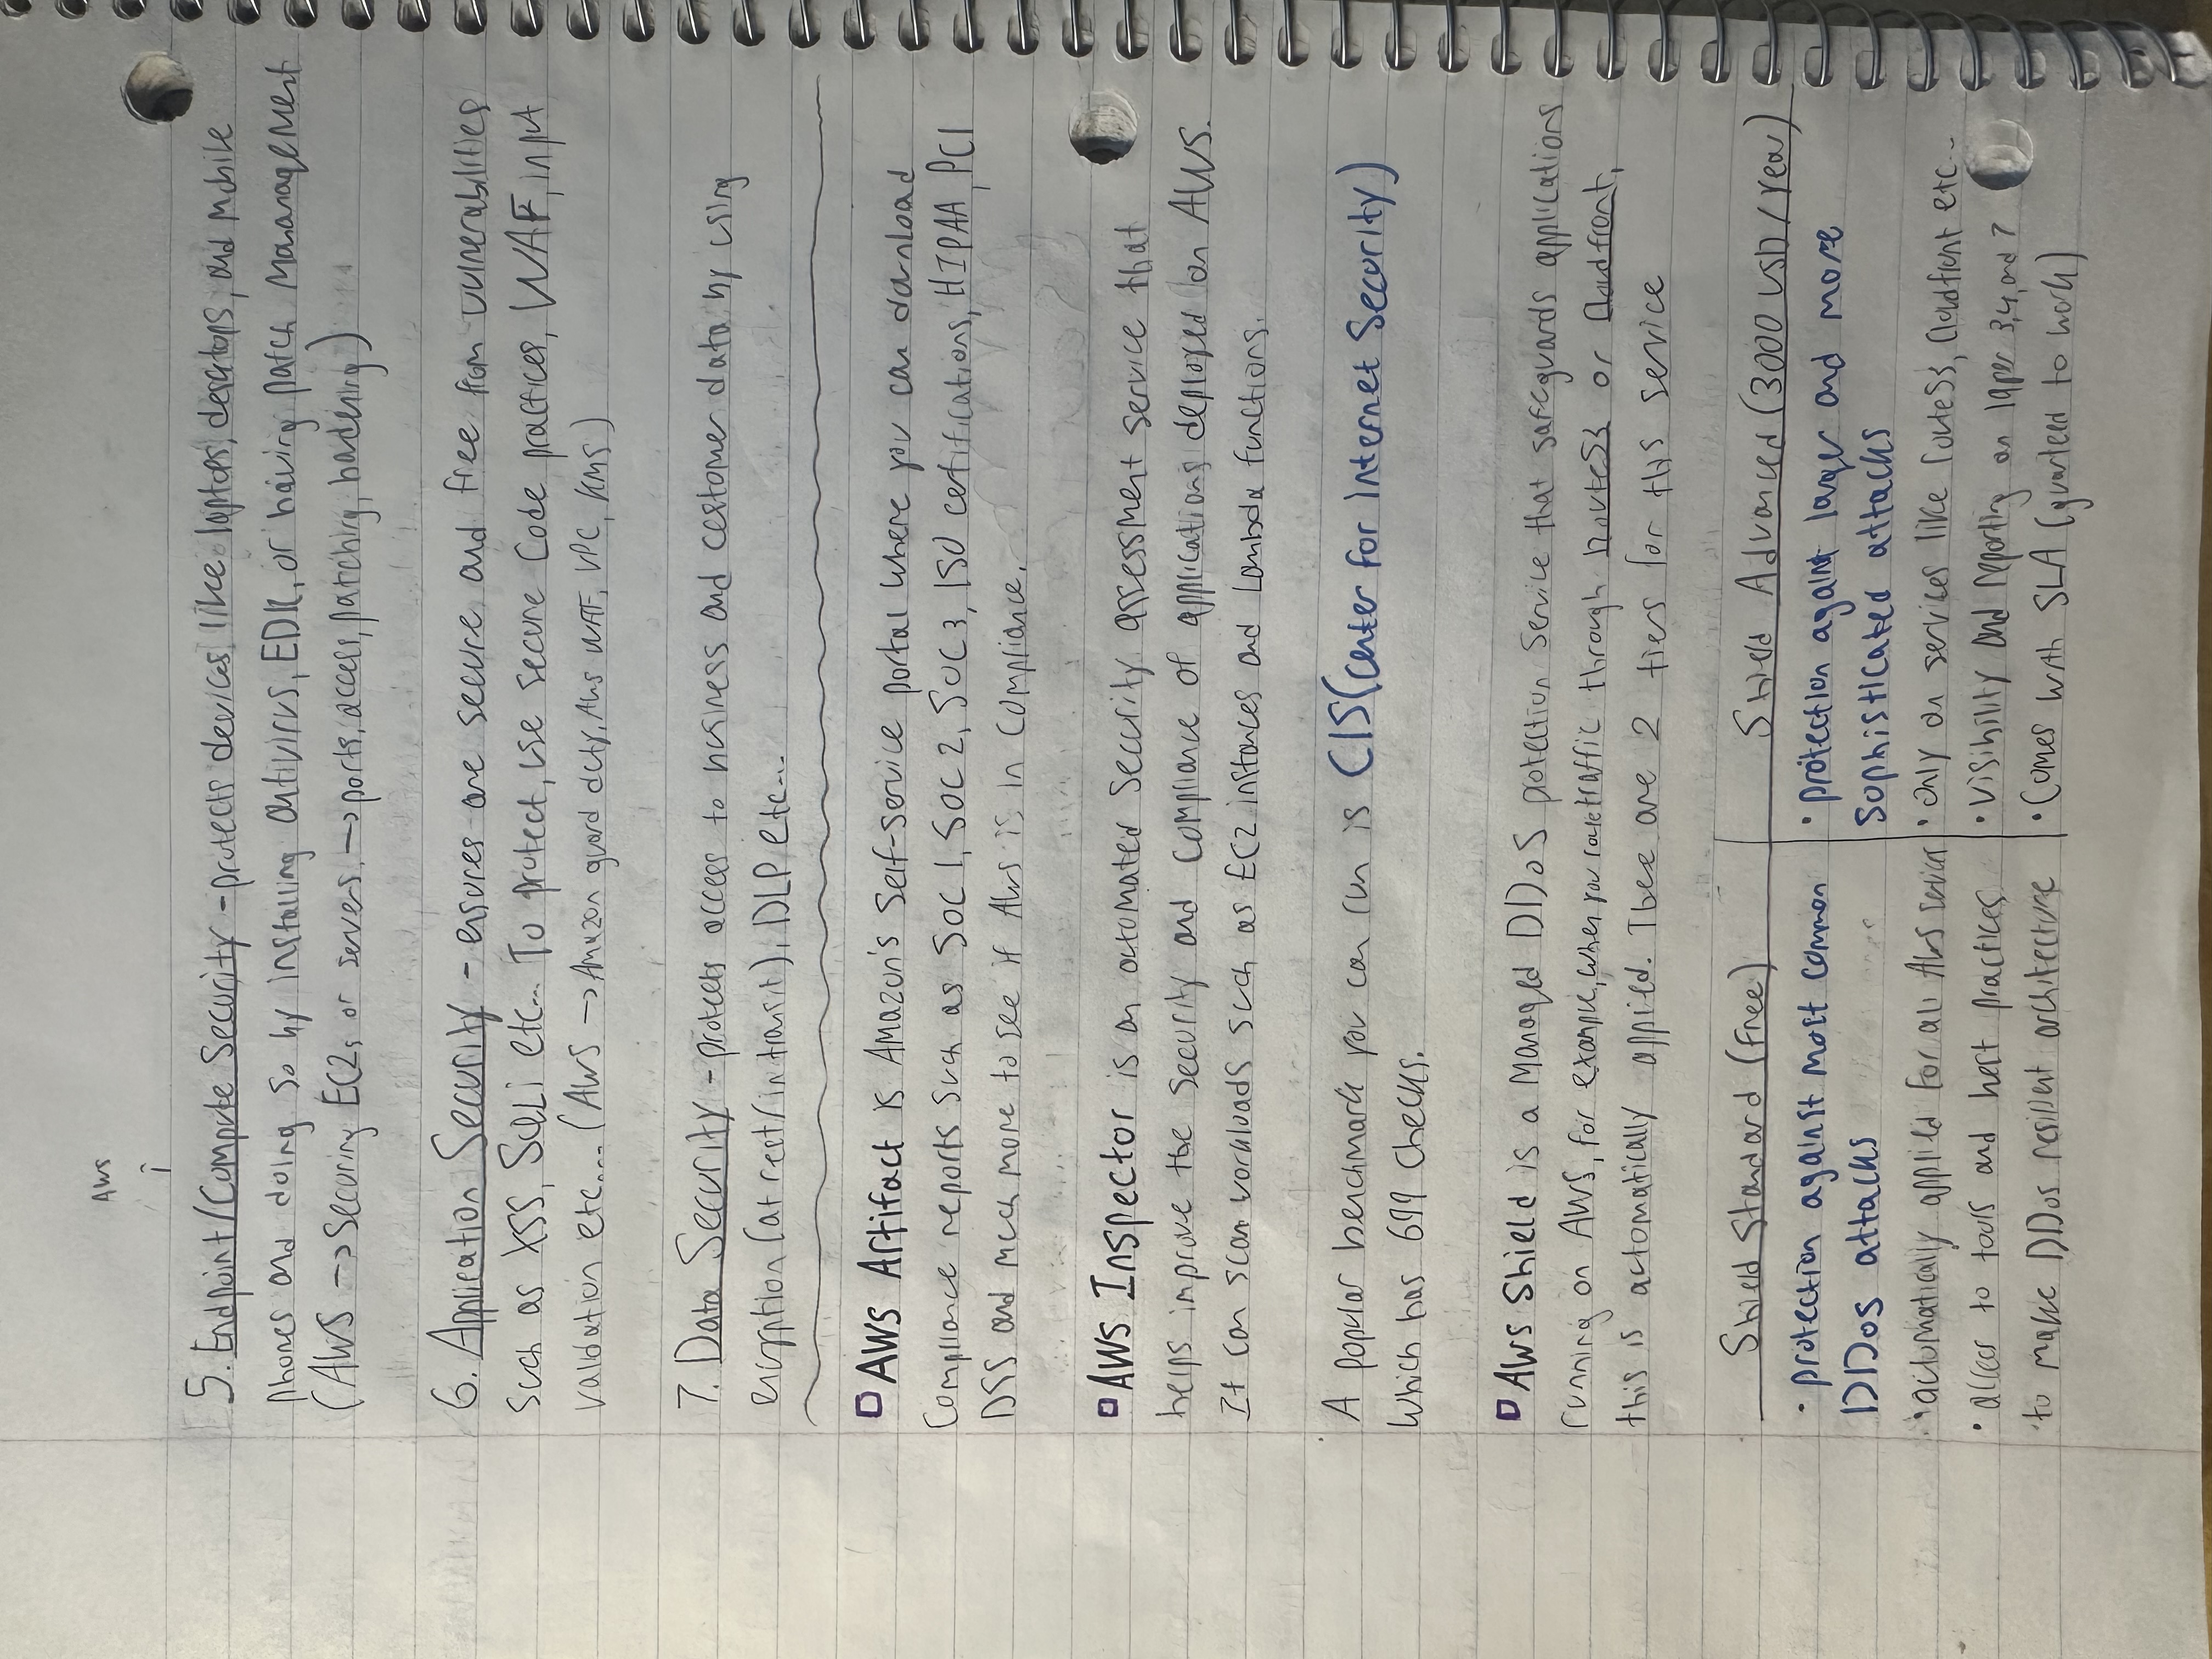 AWS
↑
5. Endpoint/Compute Security - protects devices like laptops, desktops, and mobile
phones and doing so by installing antivirus, EDR, or having patch Mananagement
(AWS → securing EC2s or servers → ports, access, patching, hardening)
6. Application Security - ensures are secure and free from vulnerabilities
such as XSS, SQLi etc... To protect, use secure code practices, WAF, input
validation etc.... (AWS → Amazon guard duty, Aws WAF, VPC, KMS)
7. Data Security - protects access to business and customer data by using
encryption (at rest/in transit), DLP etc...
AWS Artifact is Amazon's self-service portal where you can download
Compliance reports such as SOC 1, SOC 2, SOC 3, ISO certifications, HIPAA, PCI
DSS and much more to see if AWS is in compliance.
AWS Inspector is an automated security assessment service that
helps improve the security and compliance of applications deployed on AWS.
It can scan workloads such as EC2 instances and Lambda functions.
A popular benchmark you can run is CIS (Center for Internet Security)
Which has 699 checks.
AWS Shield is a Managed DDoS protection service that safeguards applications
running on AWS, for example, when you route traffic through Route53 or Cloudfront,
this is automatically applied. There are 2 tiers for this service
Shield Standard (Free)
• protection against most common
DDos attacks
• automatically applied for all AWS services
• access to tools and best practices
to make DDos resilient architecture
Shield Advanced (3000 USD/Year)
• protection against larger and more
sophisticated attacks
• Only on services like Route53, Cloudfront etc...
• Visibility and reporting on layer 3,4, and 7
• Comes with SLA (guarteed to work)